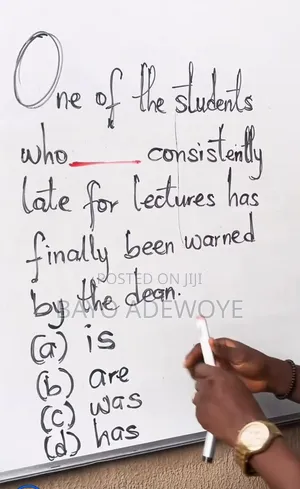 One of the students
who ______ consistently
late for lectures has
finally been warned
POSTED ON JIJI
by the dean.
BAYO ADEWOYE
(a) is
(b) are
(c) was
(d) has